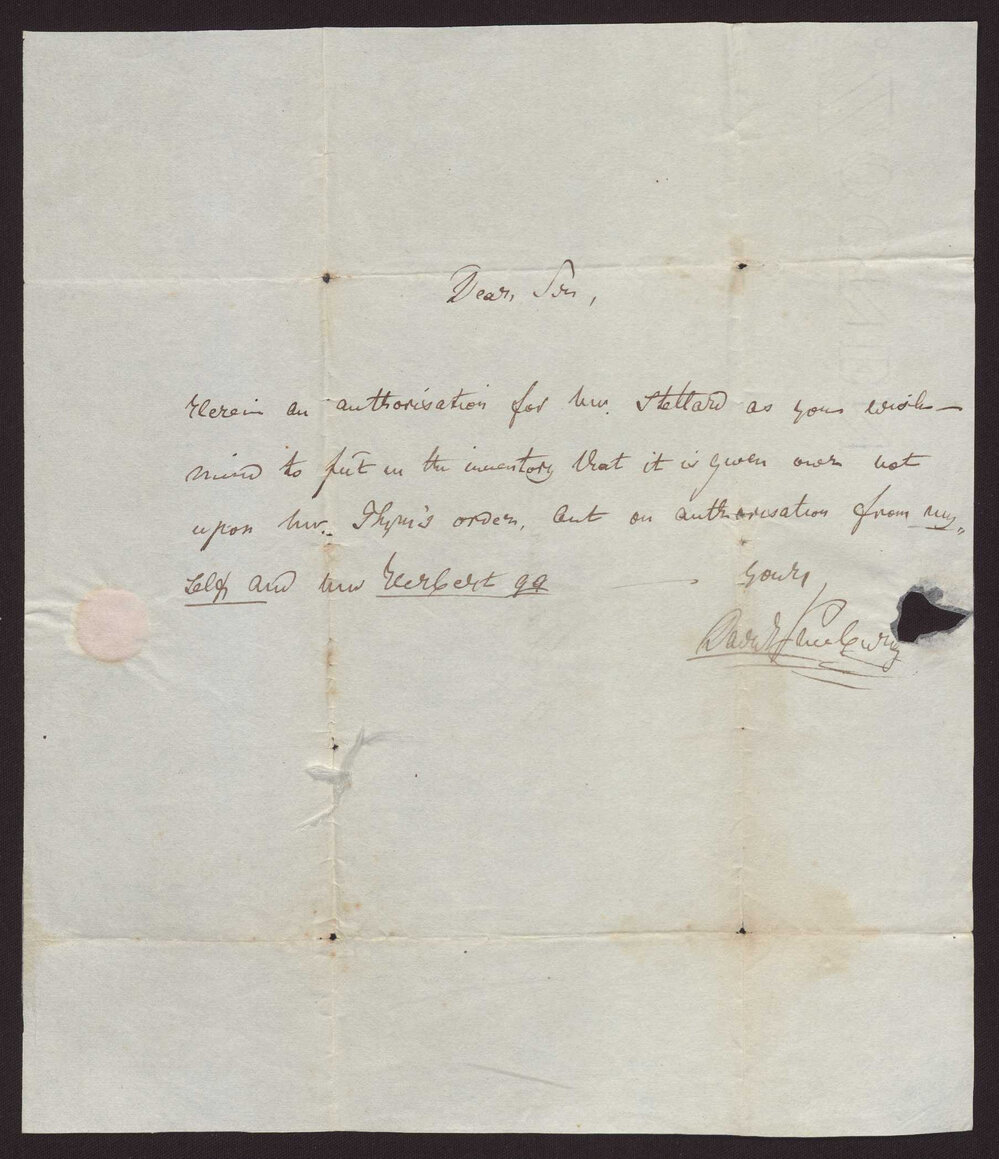 Dear Sir,
Herein an authorisation for Mr. Stettard as you wish –
mind to put in the inventory that it is given over not
upon Mr. Thym's order, but on authorisation from my„
self and Mr Herbert qq
Yours
David